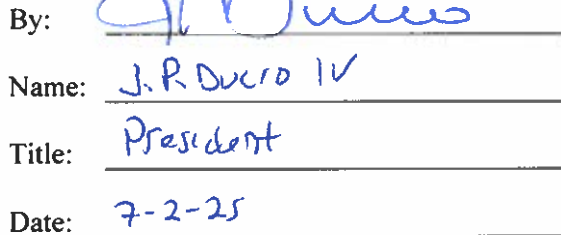 By:
Name: J.P. Ducro IV
Title: President
Date: 7-2-25